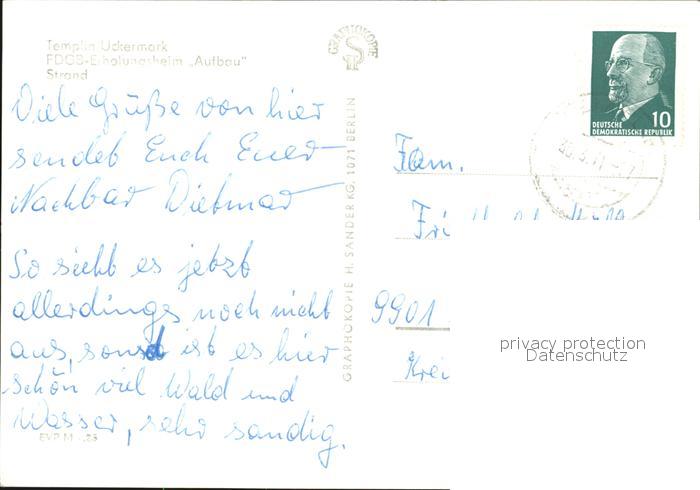 Templin Uckermark
FDGB-Erholungsheim „Aufbau"
Strand
Viele Grüße von hier
sendet Euch Euer
Nachbar Dietmar
So sieht es jetzt
allerdings noch nicht
aus, sonst ist es hier
schön viel Wald und
Wasser, sehr sandig.
EVP M -,25
GRAPHOKOPIE
GRAPHOKOPIE H. SANDER KG, 1071 BERLIN
10
DEUTSCHE
DEMOKRATISCHE REPUBLIK
Fam.
9901
privacy protection
Datenschutz